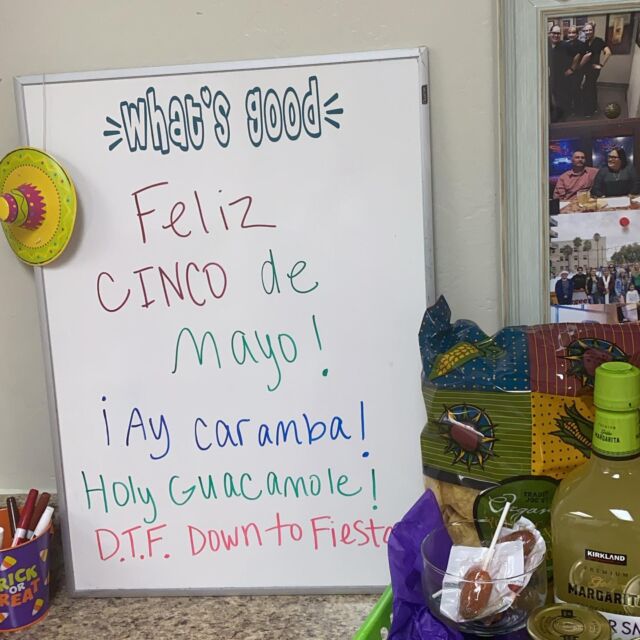 What's good
Feliz
CINCO de
Mayo!
¡Ay caramba!
Holy Guacamole!
D.T.F. Down to Fiesta
TRICK
OR
TREAT
TRADER JOE'S
Organic
MARGARITA
KIRKLAND
PREMIUM
MARGARITA